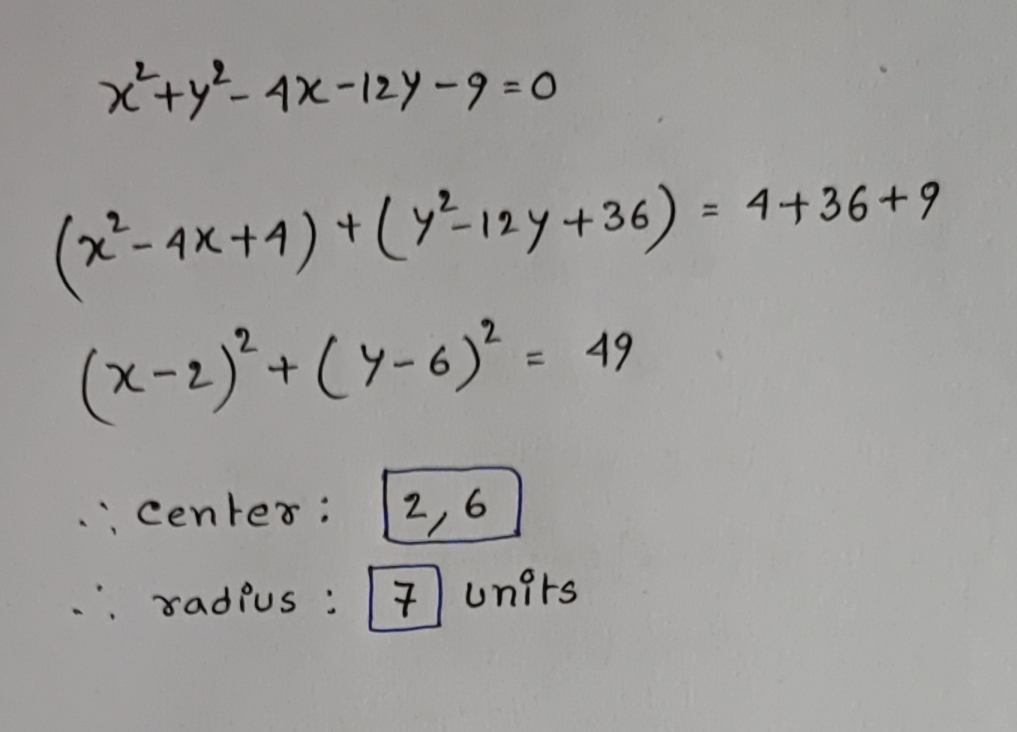 x²+y²-4x-12y-9=0
(x²-4x+4)+(y²-12y+36) = 4+36+9
(x-2)²+(y-6)² = 49
∴ center: 2, 6
∴ radius: 7 units